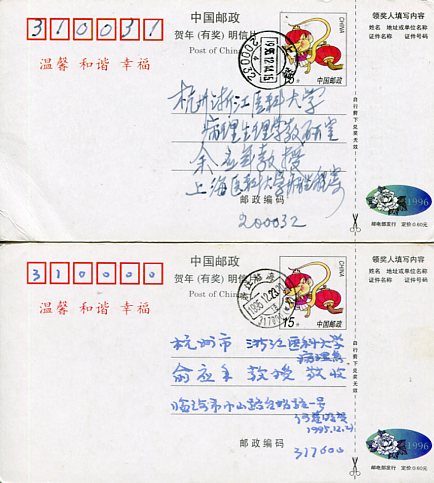 310031
中国邮政
贺年(有奖)明信片
Post of China
温馨 和谐 幸福
1995.12.14.15
200032
CHINA
中国邮政
领奖人填写内容
姓名 地址或单位名称
证件名称 证件号码
自行剪下兑奖无效
杭州浙江医科大学
病理生理学教研室
余应年教授
上海医科大学
邮政编码
200032
1996
邮电部发行 定价:0.60元
310000
中国邮政
贺年(有奖)明信片
Post of China
温馨 和谐 幸福
1995.12.23
3170
CHINA
15分
中国邮政
领奖人填写内容
姓名 地址或单位名称
证件名称 证件号码
自行剪下兑奖无效
杭州市 浙江医科大学
病理系
俞应年 教授 敬收
临海市
一号
1995.12.21
邮政编码
317000
1996
邮电部发行 定价:0.60元